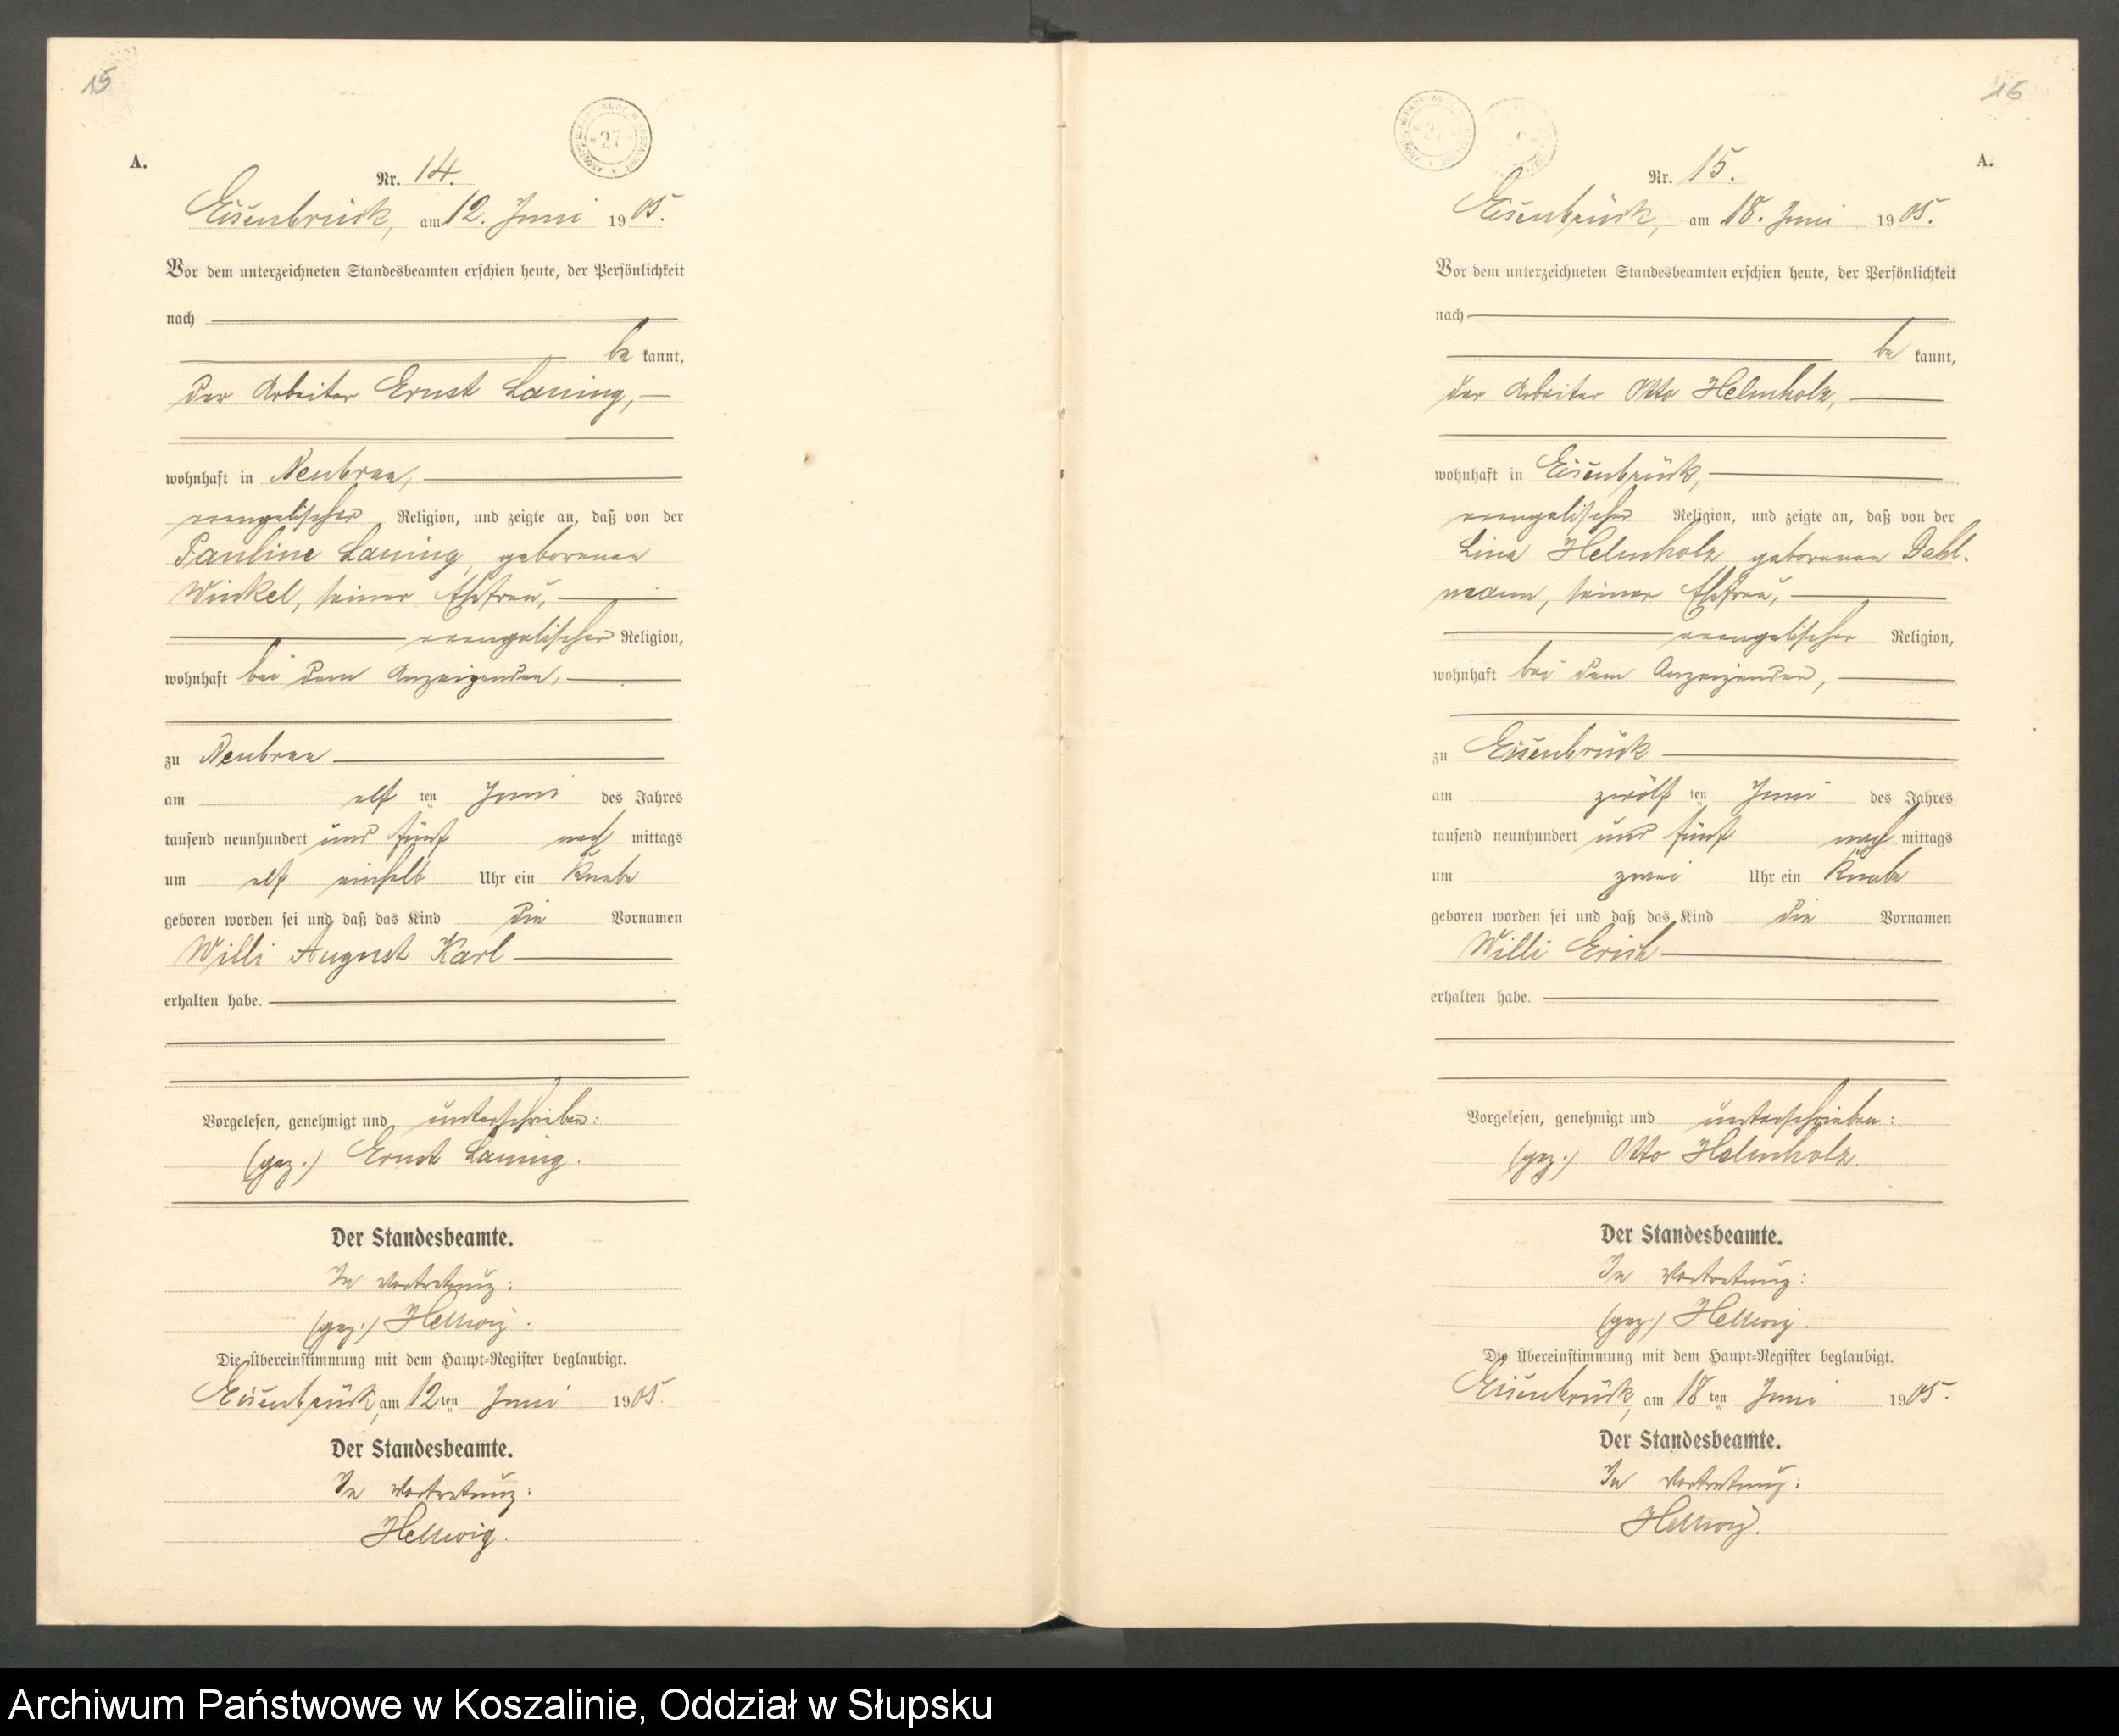 15
A.
Nr. 14.
Eisenbrück, am 12. Juni 1905.
Vor dem unterzeichneten Standesbeamten erschien heute, der Persönlichkeit
nach
be kannt,
der Arbeiter Ernst Lauing,
wohnhaft in Neubraa,
evangelischer Religion, und zeigte an, daß von der
Pauline Lauing, geborenen
Winkel, seiner Ehefrau,
evangelischer Religion,
wohnhaft bei dem Anzeigenden,
zu Neubraa
am elf ten Juni des Jahres
tausend neunhundert und fünf nach mittags
um elf einhalb Uhr ein Knabe
geboren worden sei und daß das Kind die Vornamen
Willi August Karl
erhalten habe.
Vorgelesen, genehmigt und unterschrieben:
(gez.) Ernst Lauing.
Der Standesbeamte.
In Vertretung:
(gez.) Hellwig.
Die Übereinstimmung mit dem Haupt-Register beglaubigt.
Eisenbrück, am 12ten Juni 1905.
Der Standesbeamte.
In Vertretung:
Hellwig.
16
A.
Nr. 15.
Eisenbrück, am 18. Juni 1905.
Vor dem unterzeichneten Standesbeamten erschien heute, der Persönlichkeit
nach
be kannt,
der Arbeiter Otto Helmholz,
wohnhaft in Eisenbrück,
evangelischer Religion, und zeigte an, daß von der
Lina Helmholz geborenen Dahl-
wohnhaft bei dem Anzeigenden,
seiner Ehefrau,
evangelischer Religion,
zu Eisenbrück
am zwölf ten Juni des Jahres
tausend neunhundert und fünf nach mittags
um zwei Uhr ein Knabe
geboren worden sei und daß das Kind die Vornamen
Willi Erich
erhalten habe.
Vorgelesen, genehmigt und unterschrieben:
(gez.) Otto Helmholz.
Der Standesbeamte.
In Vertretung:
(gez.) Hellwig.
Die Übereinstimmung mit dem Haupt-Register beglaubigt.
Eisenbrück, am 18ten Juni 1905.
Der Standesbeamte.
In Vertretung:
Hellwig.
27
27
Archiwum Państwowe w Koszalinie, Oddział w Słupsku